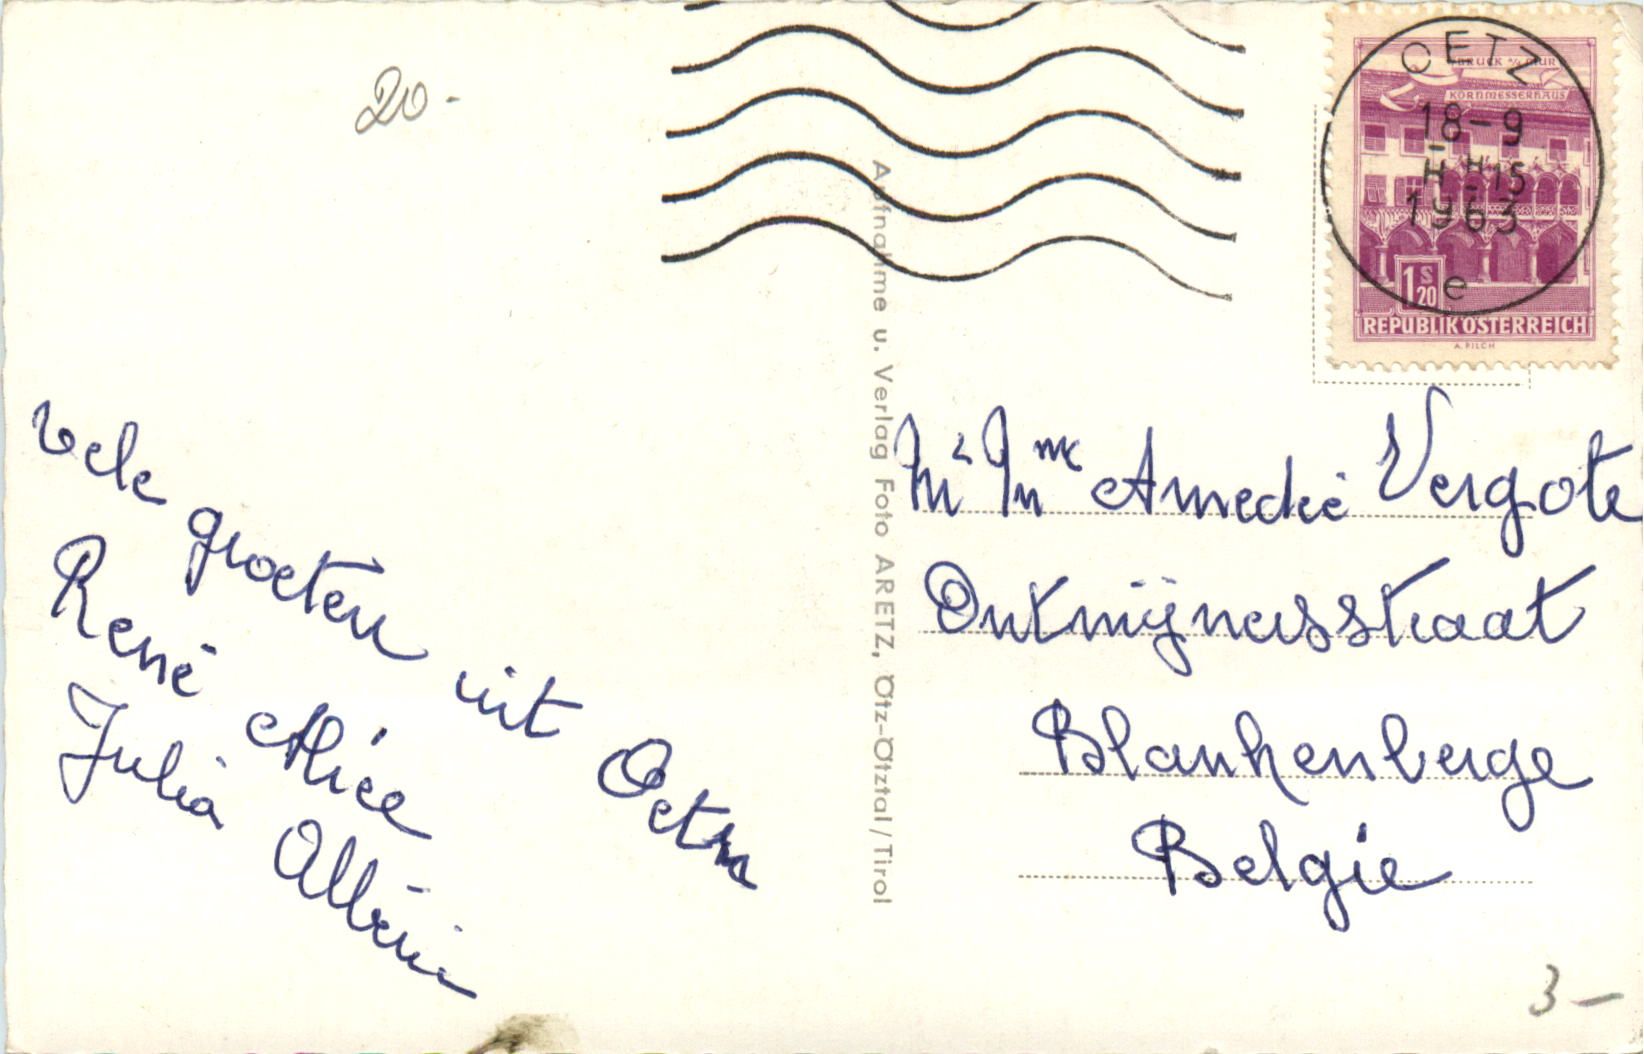 20.-
vele groeten uit Oetz
René Alice
Julia Albéric
Aufnahme u. Verlag Foto ARETZ, Ötz-Ötztal/Tirol
OETZ
18-9
1963
e
BRUCK a/d MUR
KORNMESSERHAUS
1 S 20
REPUBLIK ÖSTERREICH
A. PILCH
Mr Mme Amedée Vergote
Ontmijnersstraat
Blankenberge
Belgie
3-